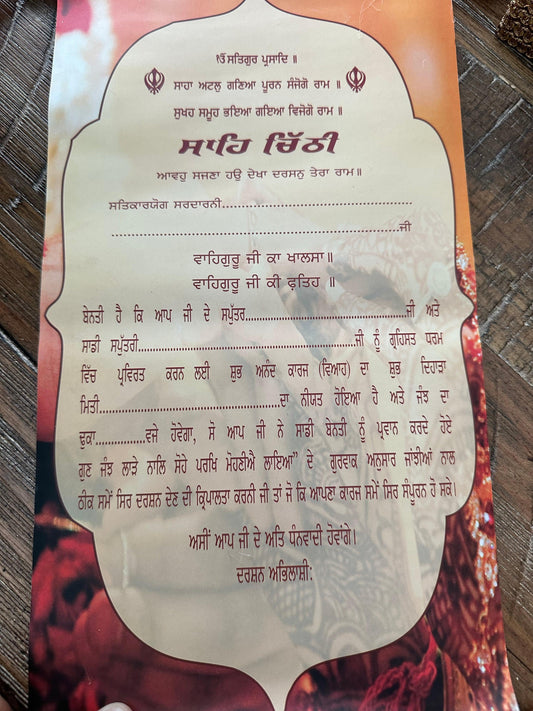 ੴ ਸਤਿਗੁਰ ਪ੍ਰਸਾਦਿ ॥
ਸਾਹਾ ਅਟਲੁ ਗਣਿਆ ਪੂਰਨ ਸੰਜੋਗੋ ਰਾਮ ॥
ਸੁਖਹ ਸਮੂਹ ਭਇਆ ਗਇਆ ਵਿਜੋਗੋ ਰਾਮ ॥
ਸਾਹਿ ਚਿੱਠੀ
ਆਵਹੁ ਸਜਣਾ ਹਉ ਦੇਖਾ ਦਰਸਨੁ ਤੇਰਾ ਰਾਮ॥
ਸਤਿਕਾਰਯੋਗ ਸਰਦਾਰਨੀ..................................................
..........................................................................ਜੀ
ਵਾਹਿਗੁਰੂ ਜੀ ਕਾ ਖਾਲਸਾ॥
ਵਾਹਿਗੁਰੂ ਜੀ ਕੀ ਫ਼ਤਿਹ ॥
ਬੇਨਤੀ ਹੈ ਕਿ ਆਪ ਜੀ ਦੇ ਸਪੁੱਤਰ........................................ਜੀ ਅਤੇ
ਸਾਡੀ ਸਪੁੱਤਰੀ.....................................................ਜੀ ਨੂੰ ਗ੍ਰਹਿਸਤ ਧਰਮ
ਵਿੱਚ ਪ੍ਰਵਿਰਤ ਕਰਨ ਲਈ ਸ਼ੁਭ ਅਨੰਦ ਕਾਰਜ (ਵਿਆਹ) ਦਾ ਸ਼ੁਭ ਦਿਹਾੜਾ
ਮਿਤੀ.............................................ਦਾ ਨੀਯਤ ਹੋਇਆ ਹੈ ਅਤੇ ਜੰਝ ਦਾ
ਢੁਕਾ............ਵਜੇ ਹੋਵੇਗਾ, ਸੋ ਆਪ ਜੀ ਨੇ ਸਾਡੀ ਬੇਨਤੀ ਨੂੰ ਪ੍ਰਵਾਨ ਕਰਦੇ ਹੋਏ
ਗੁਣ ਜੰਝ ਲਾੜੇ ਨਾਲਿ ਸੋਹੇ ਪਰਖਿ ਮੋਹਣੀਐ ਲਾਇਆ” ਦੇ ਗੁਰਵਾਕ ਅਨੁਸਾਰ ਜਾਂਝੀਆਂ ਨਾਲ
ਠੀਕ ਸਮੇਂ ਸਿਰ ਦਰਸ਼ਨ ਦੇਣ ਦੀ ਕ੍ਰਿਪਾਲਤਾ ਕਰਨੀ ਜੀ ਤਾਂ ਜੋ ਕਿ ਆਪਣਾ ਕਾਰਜ ਸਮੇਂ ਸਿਰ ਸੰਪੂਰਨ ਹੋ ਸਕੇ।
ਅਸੀਂ ਆਪ ਜੀ ਦੇ ਅਤਿ ਧੰਨਵਾਦੀ ਹੋਵਾਂਗੇ।
ਦਰਸ਼ਨ ਅਭਿਲਾਸ਼ੀ: